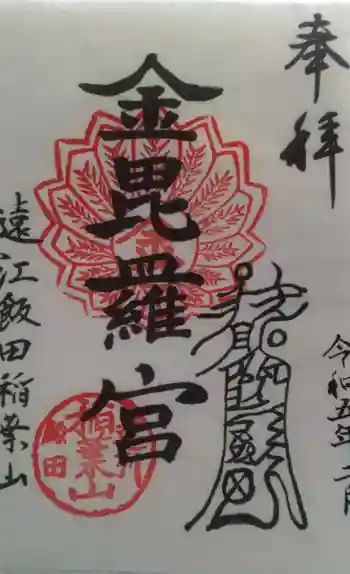 奉拝
令和五年二月
金毘羅宮
遠江飯田稲葉山
稲葉山
飯田